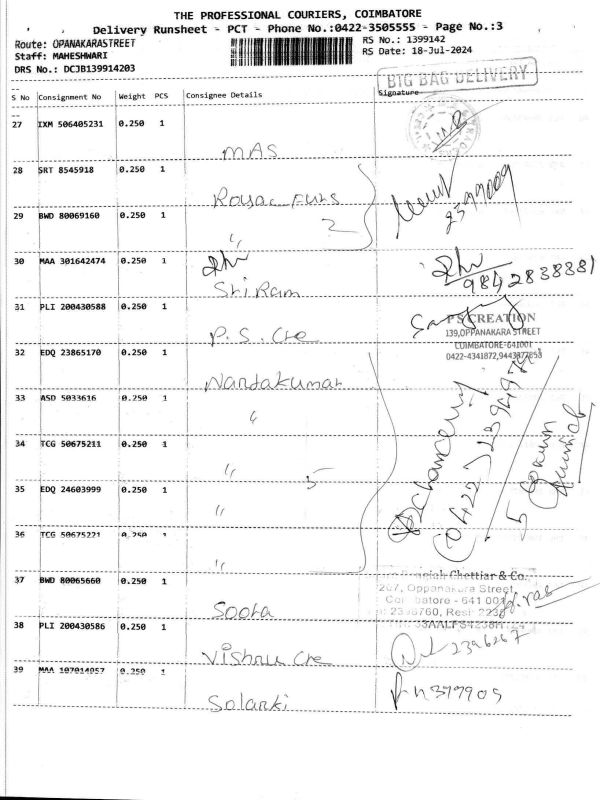 THE PROFESSIONAL COURIERS, COIMBATORE
Delivery Runsheet - PCT - Phone No.:0422-3505555 - Page No.:3
Route: OPANAKARASTREET
RS No.: 1399142
Staff: MAHESHWARI
RS Date: 18-Jul-2024
DRS No.: DCJB139914203
BIG BAG DELIVERY
S No Consignment No Weight PCS Consignee Details Signature
27 IXM 506405231 0.250 1
MAS
28 SRT 8545918 0.250 1
29 BWD 80069160 0.250 1
2
30 MAA 301642474 0.250 1
9842838881
Sri Ram
31 PLI 200430588 0.250 1
P S CREATION
139,OPPANAKARA STREET
COIMBATORE-641001
P.S. Cre
32 EDQ 23865170 0.250 1
Nandakumar
33 ASD 5033616 0.250 1
"
34 TCG 50675211 0.250 1
" 5
35 EDQ 24603999 0.250 1
"
36 TCG 50675221 0.250 1
"
37 BWD 80065660 0.250 1
Chettiar & Co.
207, Oppanakara Street,
641 001
38 PLI 200430586 0.250 1
2396267
Vishnu Cre
39 MAA 107014957 0.250 1
Solanki